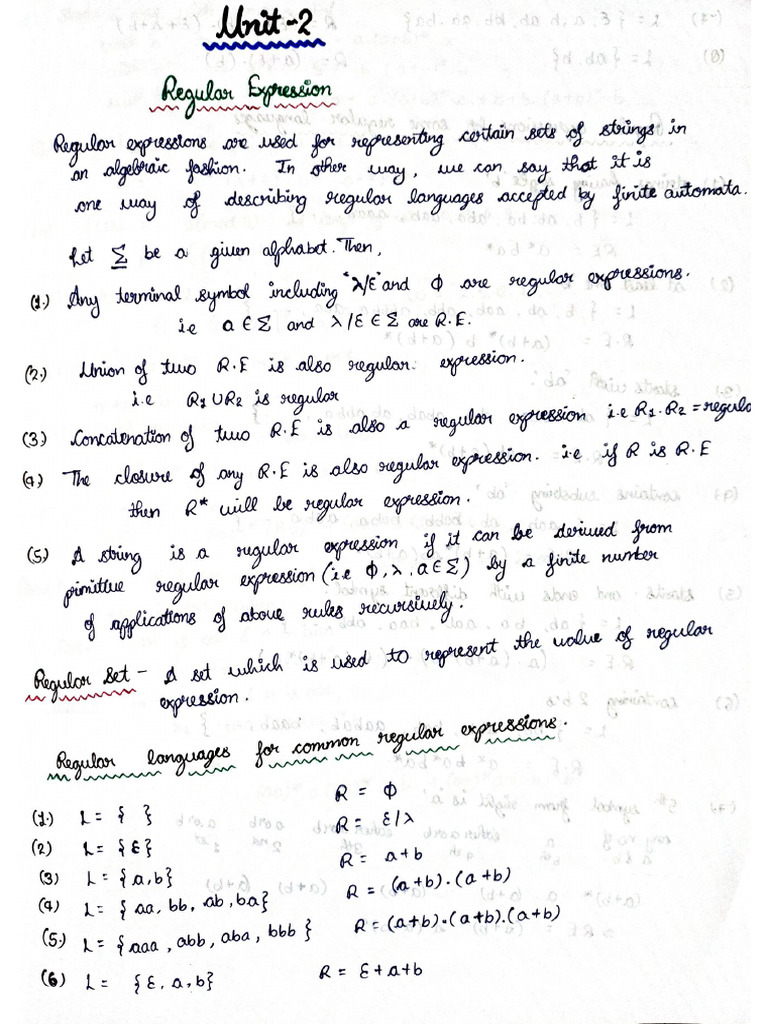 Unit-2
Regular Expression
Regular expressions are used for representing certain sets of strings in
an algebraic fashion. In other way, we can say that it is
one way of describing regular languages accepted by finite automata.
Let Σ be a given alphabet. Then,
(1.) Any terminal symbol including "λ/ε" and Φ are regular expressions.
i.e a ∈ Σ and λ/ε ∈ Σ are R.E.
(2.) Union of two R.E is also regular expression.
i.e R1 ∪ R2 is regular
(3.) Concatenation of two R.E is also a regular expression i.e R1. R2 = regula
(4.) The closure of any R.E is also regular expression. i.e if R is R.E
then R* will be regular expression.
(5.) A string is a regular expression if it can be derived from
primitive regular expression (i.e Φ, λ, a ∈ Σ) by a finite number
of applications of above rules recursively.
Regular Set - A set which is used to represent the value of regular
expression.
Regular languages for common regular expressions.
(1.) L = { } R = Φ
(2) L = {ε} R = ε/λ
(3) L = {a,b} R = a+b
(4) L = {aa, bb, ab, ba} R = (a+b).(a+b)
(5.) L = {aaa, abb, aba, bbb} R = (a+b).(a+b).(a+b)
(6) L = {ε, a, b} R = ε+a+b